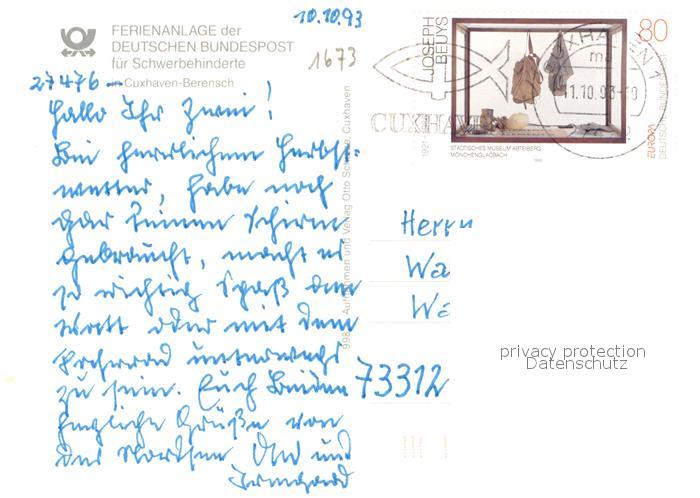 10.10.93
FERIENANLAGE der
DEUTSCHEN BUNDESPOST
für Schwerbehinderte
in Cuxhaven-Berensch
1673
27476
Hallo Ihr Zwei!
Bei herrlichem Herbst-
wetter, habe noch
gar keinen Schirm
gebraucht, macht es
so richtig Spaß am
Watt oder mit dem
Fahrrad unterwegs
zu sein. Euch Beiden
herzliche Grüße von
der Nordsee und
Irmgard
Aufnahmen und Verlag Otto Cuxhaven
JOSEPH
BEUYS
1921
80
STÄDTISCHES MUSEUM ABTEIBERG
MÖNCHENGLADBACH
EUROPA
DEUTSCHE BUNDESPOST
CUXHAVEN 1
11.10.93-19
CUXHAVE
Herrn
Wa
We
73312
privacy protection
Datenschutz